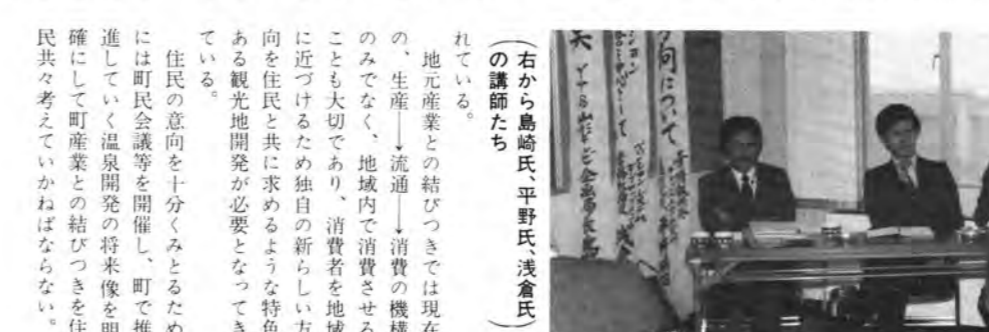 向について
（右から島崎氏、平野氏、浅倉氏
の講師たち）
れている。
地元産業との結びつきでは現在
の、生産──→流通──→消費の機構
のみでなく、地域内で消費させる
ことも大切であり、消費者を地域
に近づけるため独自の新らしい方
向を住民と共に求めるような特色
ある観光地開発が必要となってき
ている。
住民の意向を十分くみとるため
には町民会議等を開催し、町で推
進していく温泉開発の将来像を明
確にして町産業との結びつきを住
民共々考えていかねばならない。